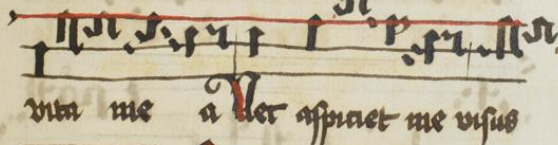 vita me a Nec aspiciet me visus